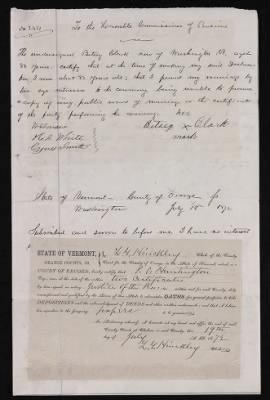 To the Honorable Commissioner of Pensions
The undersigned Betsey Clark now of Washington Vt, aged
years, certify that at the time of making my said Declara-
tion, I was about years old; that I proved my marriage by
two eye witnesses to the ceremony being unable to procure
a copy of any public record of marriage or the certificate
of the party performing the ceremony.
Betsey X Clark
mark
H. A. White
Cyrus Smith
State of Vermont County of Orange ss
Washington July 18th 1872
Subscribed and sworn to before me I have no interest
STATE OF VERMONT,
ORANGE COUNTY, SS.
I, L. G. Hinckley Clerk of the County
Court for the County of Orange in the State of Vermont, which is a
COURT OF RECORD, hereby certify that
two certificates
was, at the date of the
was by him signed, an acting Justice of the Peace within and for said County, duly
commissioned and qualified by the laws of the State to administer OATHS for general purposes, to take
DEPOSITIONS and the acknowledgment of DEEDS and other written instruments; and that I believe
his signature to the foregoing papers is genuine.
In attestation whereof, I hereunto set my hand and affix the seal of said
County Court, at Chelsea in said County, this 19th
day of July A. D. 1872
L. G. Hinckley Clerk